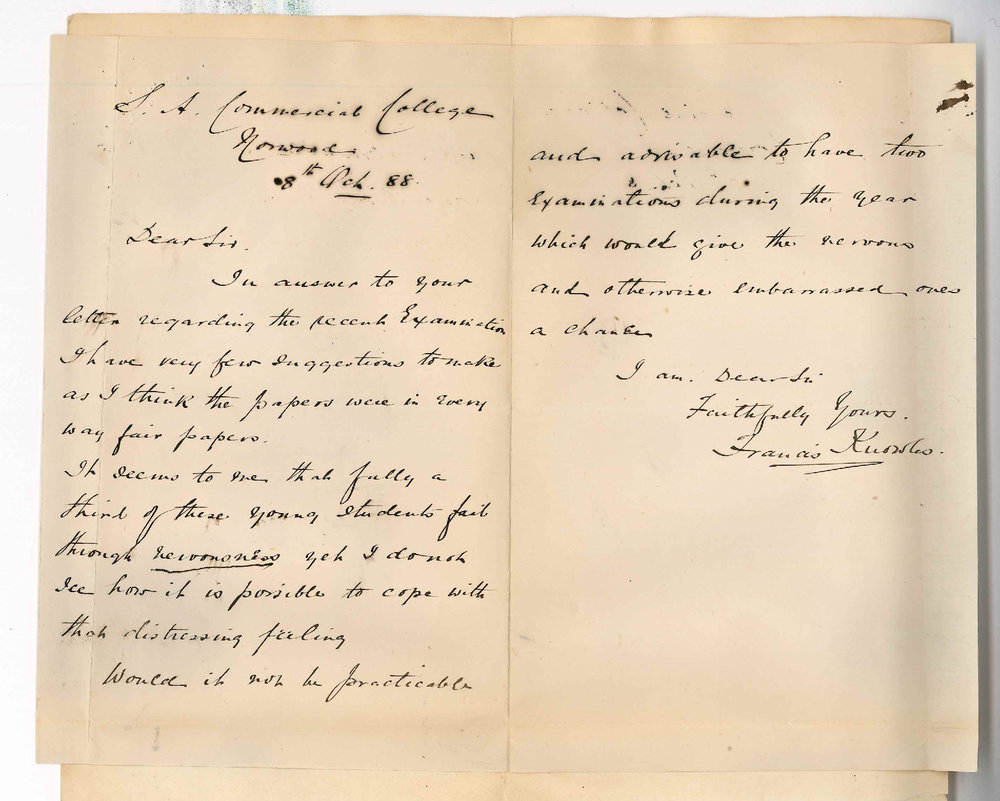 S. A. Commercial College
Norwood
8th Oct. 88.
Dear Sir.
In answer to your
letter regarding the recent Examination
I have very few suggestions to make
as I think the papers were in every
way fair papers.
It seems to me that fully a
third of these young students fail
through nervousness yet I do not
see how it is possible to cope with
that distressing feeling
Would it not be practicable
and advisable to have two
Examinations during the year
which would give the nervous
and otherwise embarrassed ones
a chance
I am. Dear Sir
Faithfully Yours.
Francis Knowles.